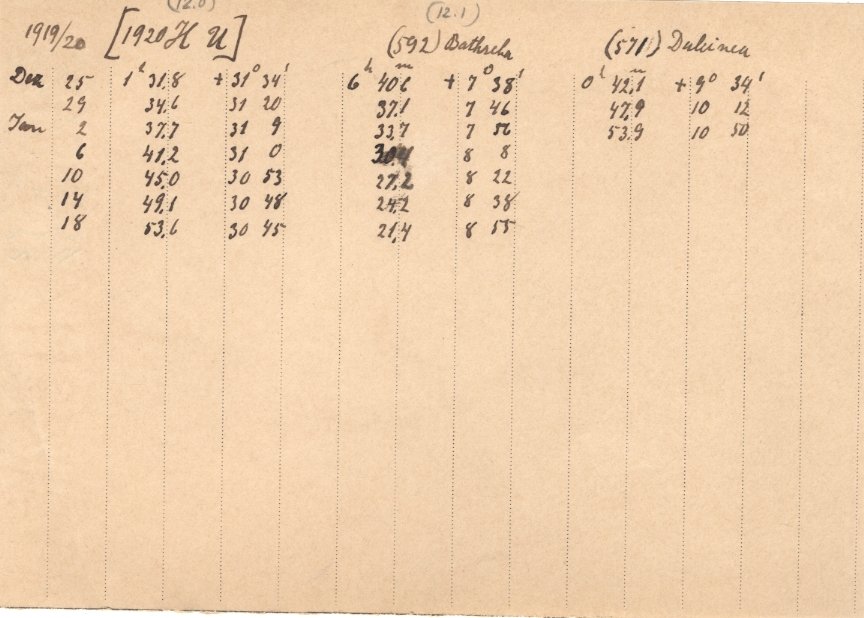 (12.0) (12.1)
1919/20 [1920 H U] (592) Bathseba (571) Dulcinea
Dez 25 1h 31,8 + 31° 34' 6h 40,6m + 7° 38' 0h 42,1m + 9° 34'
29 34,6 31 20 37,1 7 46 47,9 10 12
Jan 2 37,7 31 9 33,7 7 56 53,9 10 50
6 41,2 31 0 30,4 8 8
10 45,0 30 53 27,2 8 22
14 49,1 30 48 24,2 8 38
18 53,6 30 45 21,4 8 55